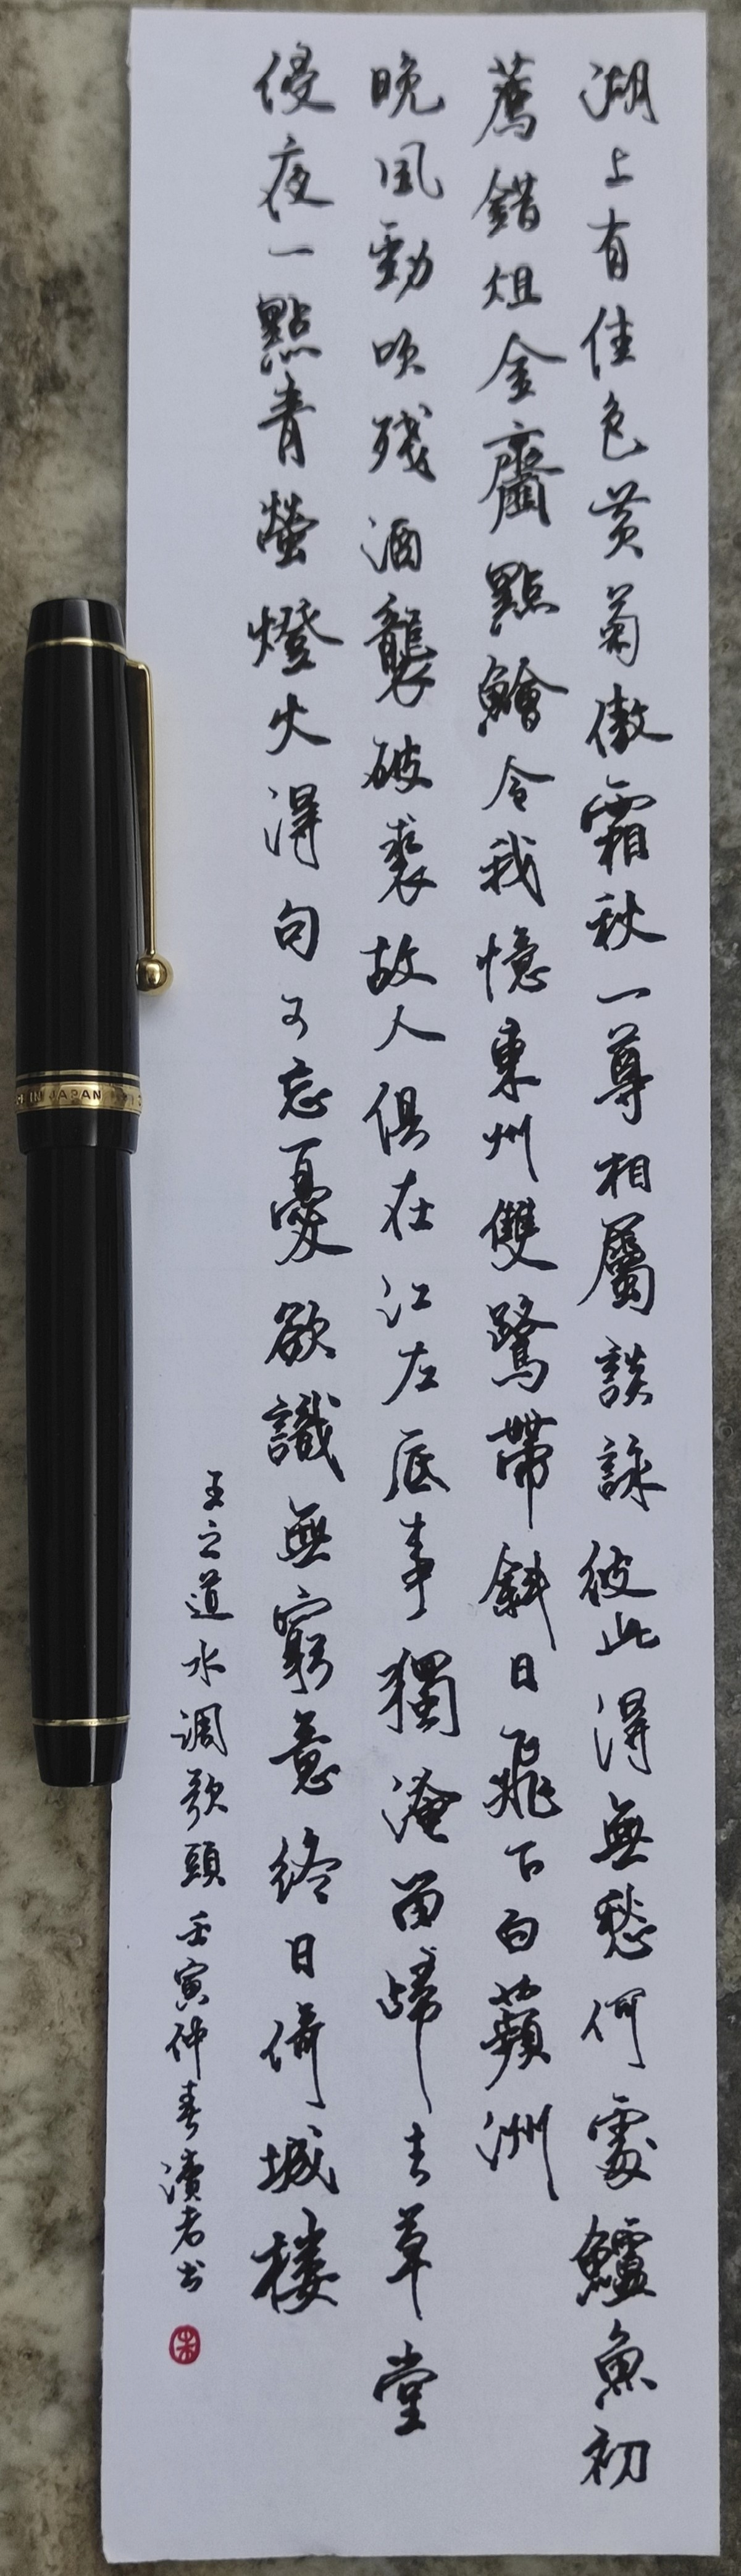 湖上有佳色黄菊傲霜秋一尊相屬談詠彼此得無愁何處鱸魚初
薦錯俎金虀點鱠令我憶東州雙鷺帶斜日飛下白蘋洲
晚風勁吹殘酒襲破裘故人俱在江左底事獨淹留歸去草堂
侵夜一點青螢燈火得句可忘憂欲識無窮意終日倚城樓
王之道水调歌頭壬寅仲春瀆者书
IN JAPAN